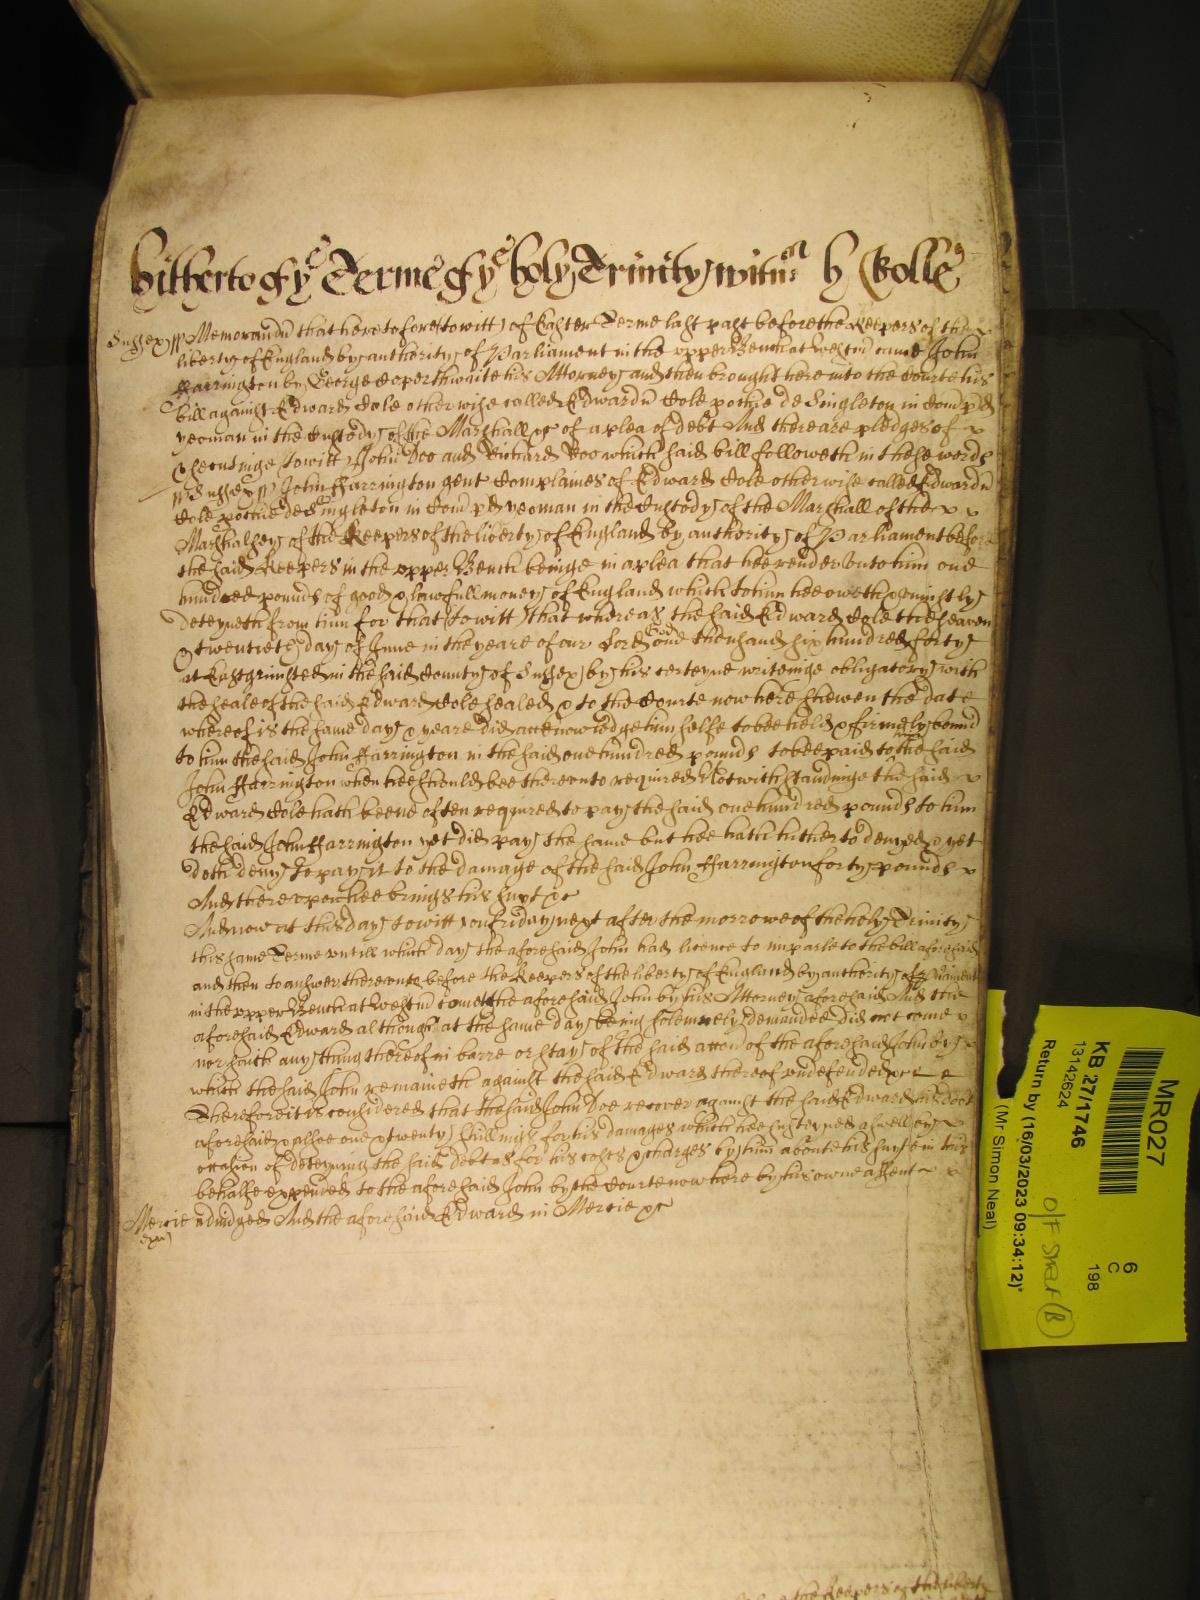 hitherto of ye Terme of ye holy Trinity witn h Rolle
Sussex ss Memorand that heretofore (to witt) of Easter Terme last past before the Keepers of the
liberty of England by authority of Parliament in the upper Bench at Westm came John
Harrington by George Coperthwaite his Attorney and then brought here into the Courte his
bill against Edward Cole otherwise called Edward Cole de Singleton in Com pd
yeoman in the Custody of the Marshall &c of a plea of debt And there are pledges of
prosecutinge (to witt) John Doo and Richard Roo which said bill followeth in these words
ss Sussex ss John Harrington gent Complaines of Edward Cole otherwise called Edward
Cole de Singleton in Com pd yeoman in the Custody of the Marshall of the
Marshalsey of the Keepers of the liberty of England by authority of Parliament before
the said Keepers in the upper Bench beinge in a plea that hee render unto him one
hundred pounds of good & lawfull money of England which to him hee oweth & uniustly
deteyneth from him for that (to witt) that whereas the said Edward Cole the seaven
& twentieth day of June in the yeare of our Lord God one thousand six hundred forty
at Eastgrinsted in the said County of Sussex by his certeyne writeinge obligatory with
the seale of the said Edward Cole sealed & to the Courte now here shewen the date
whereof is the same day & yeare did acknowledge him selfe to bee held & firmely bound
to him the said John Harrington in the said one hundred pounds to bee paid to the said
John Harrington when hee should bee thereunto required Notwithstandinge the said
Edward Cole hath beene often required to pay the said one hundred pounds to him
the said John Harrington not did pay the same but hee hath hitherto denyed & yet
doth deny to pay it to the damage of the said John Harrington forty pounds
And thereupon hee brings his suyt &c
And now at this day (to witt) on Friday next after the morrowe of the holy Trinity
this same Terme untill which day the aforesaid John had licence to imparle to the bill aforesaid
and then to answer thereunto before the Keepers of the liberty of England by authority of Parliament
in the upper Bench at Westm cometh the aforesaid John by his Attorney aforesaid And the
aforesaid Edward although at the same day being solemnely demanded did not come
nor saith any thing thereof in barre or stay of the said accon of the aforesaid John by
which the said John remaineth against the said Edward thereof undefended &c
Therefore it is considered that the said John Doe recover against the said Edward his debt
aforesaid & alsoe one & twenty shillings for his damages which hee susteyned aswell by
occasion of deteyning the said debt as for his costs & charges by him about his suyte in this
behalfe expended to the aforesaid John by the Courte now here by his owne assent
Mercie adiudged And the aforesaid Edward in Mercie &c
the Keepers of the liberty
MR027
KB 27/1746
13142624
6
C
198
Return by (16/03/2023 09:34:12)
(Mr Simon Neal)
O/F Shelf (B)